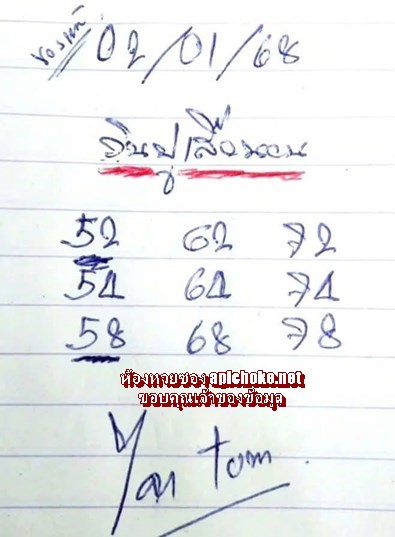 ของแท้ 02/01/68
จีนปู่เสือนอน
52 62 72
54 64 74
58 68 78
ห้องหายของ apichoke.net
ขอบคุณเจ้าของข้อมูล
tom